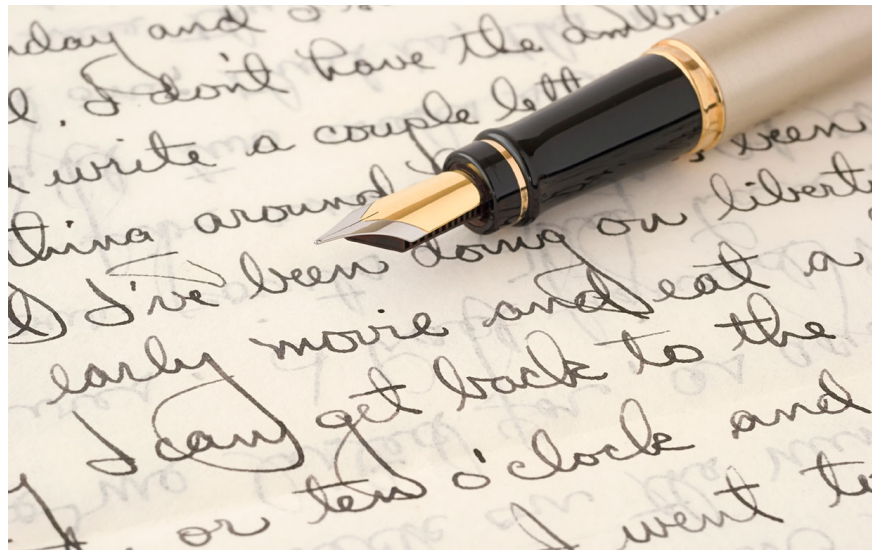 and I
I don't have the
write a couple
around been
I've been doing on
early movie and eat a
I can get back to the
or ten o'clock and
I went to